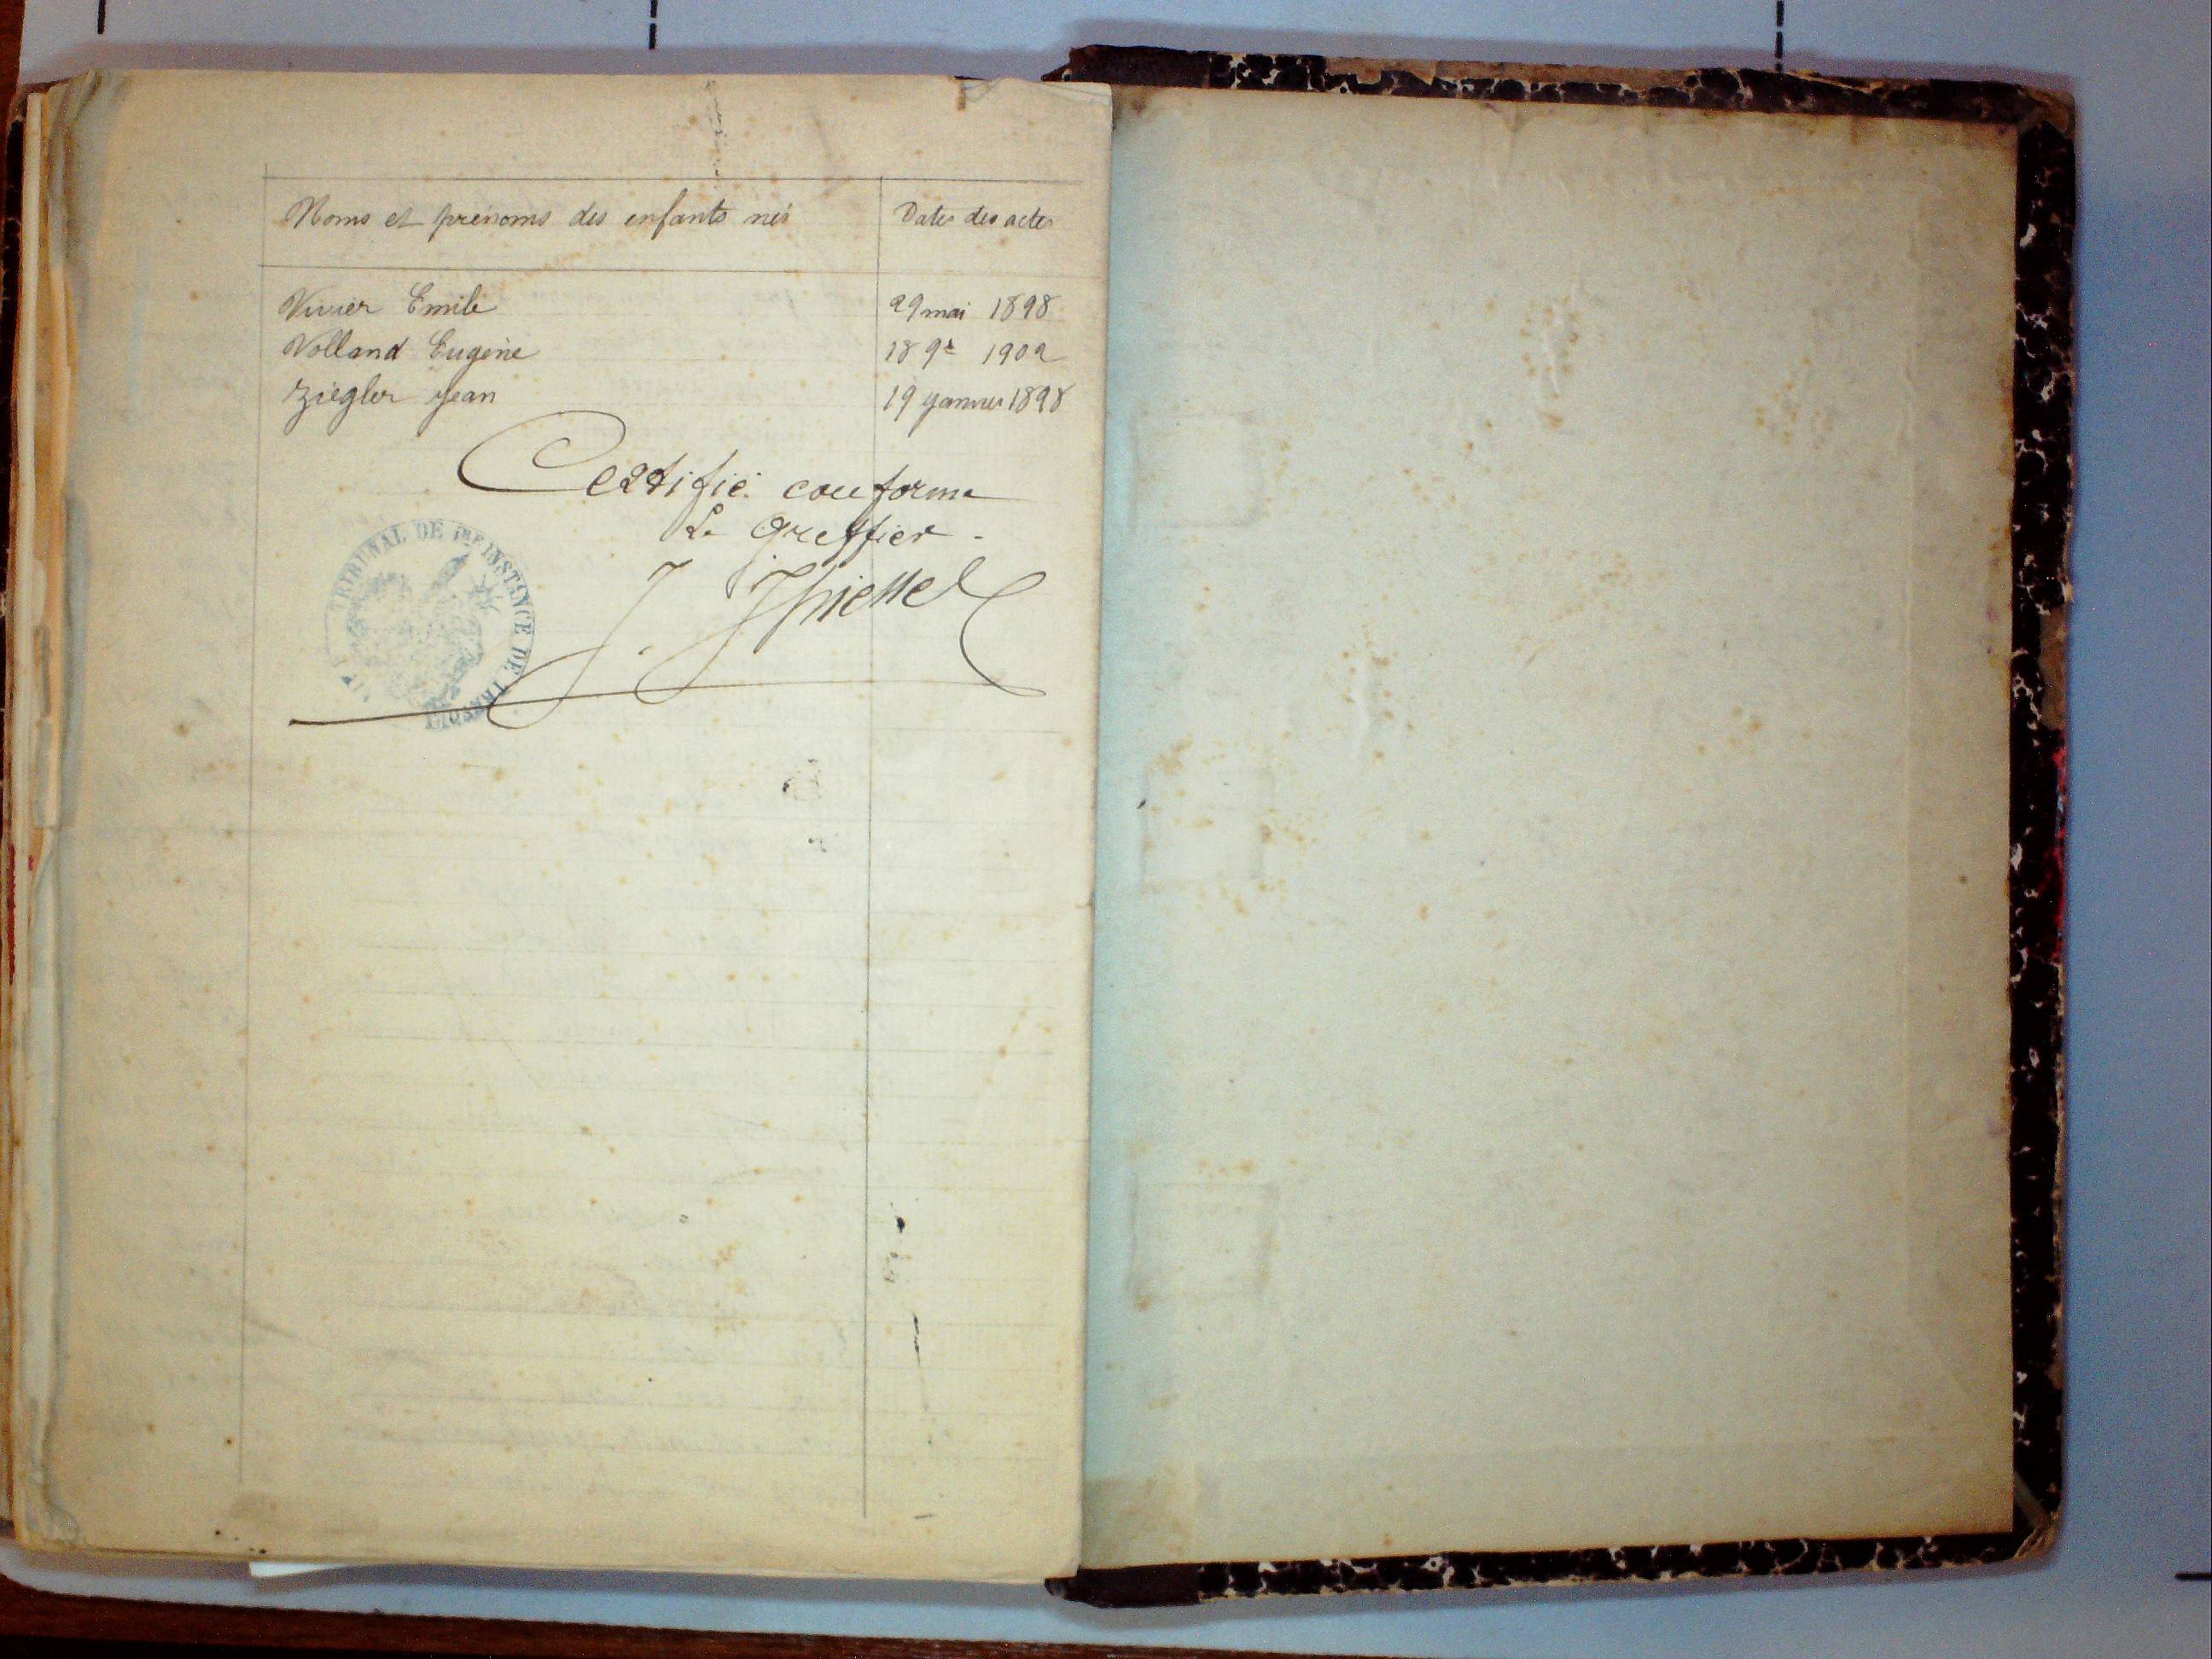 Noms et prénoms des enfants nés	Dates des actes
Vivier Emile	29 mai 1898
Volland Eugène	18 9bre 1902
Ziegler Jean	19 Janvier 1898
Certifié conforme
Le Greffier
TRIBUNAL DE 1ère INSTANCE DE